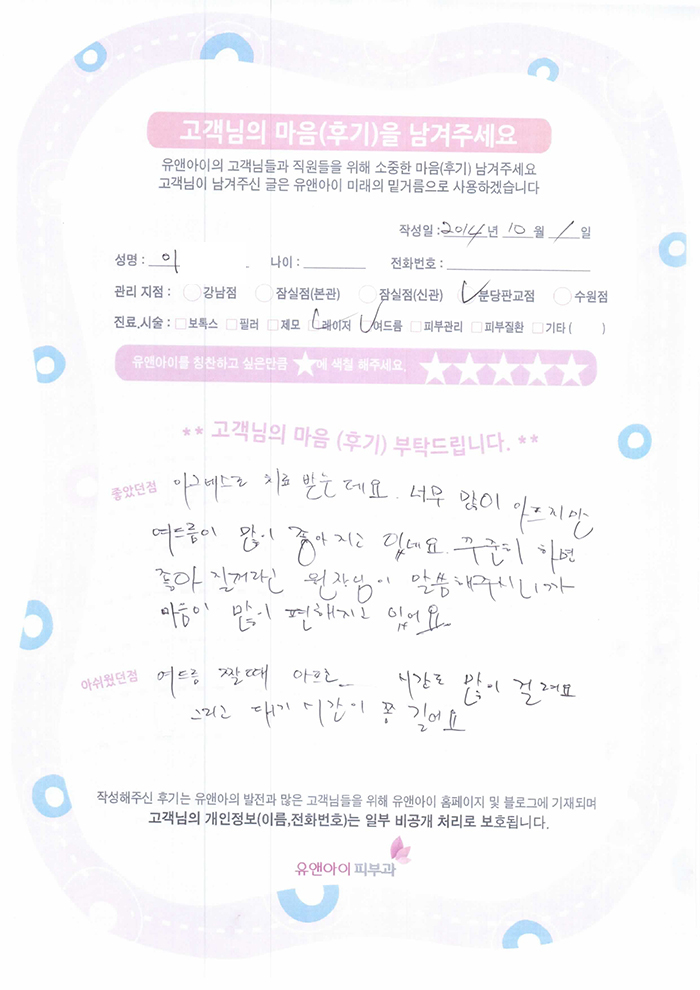 고객님의 마음(후기)을 남겨주세요
유앤아이의 고객님들과 직원들을 위해 소중한 마음(후기) 남겨주세요
고객님이 남겨주신 글은 유앤아이 미래의 밑거름으로 사용하겠습니다
작성일 : 2014 년 10 월 1 일
성명 : 이 나이 : 전화번호 :
관리 지점 : 강남점 잠실점(본관) 잠실점(신관) 분당판교점 수원점
진료.시술 : 보톡스 필러 제모 레이저 여드름 피부관리 피부질환 기타 ( )
유앤아이를 칭찬하고 싶은만큼 ★에 색칠 해주세요. ★★★★★
** 고객님의 마음 (후기) 부탁드립니다. **
좋았던점 아그네스로 치료 받는데요. 너무 많이 아프지만
여드름이 많이 좋아지고 있네요. 꾸준히 하면
좋아 질꺼라신 원장님이 말씀해주시니까
마음이 많이 편해지고 있어요.
아쉬웠던점 여드름 짤때 아프고 시간도 많이 걸려요
그리고 대기 시간이 쫌 길어요
작성해주신 후기는 유앤아의 발전과 많은 고객님들을 위해 유앤아이 홈페이지 및 블로그에 기재되며
고객님의 개인정보(이름,전화번호)는 일부 비공개 처리로 보호됩니다.
유앤아이 피부과